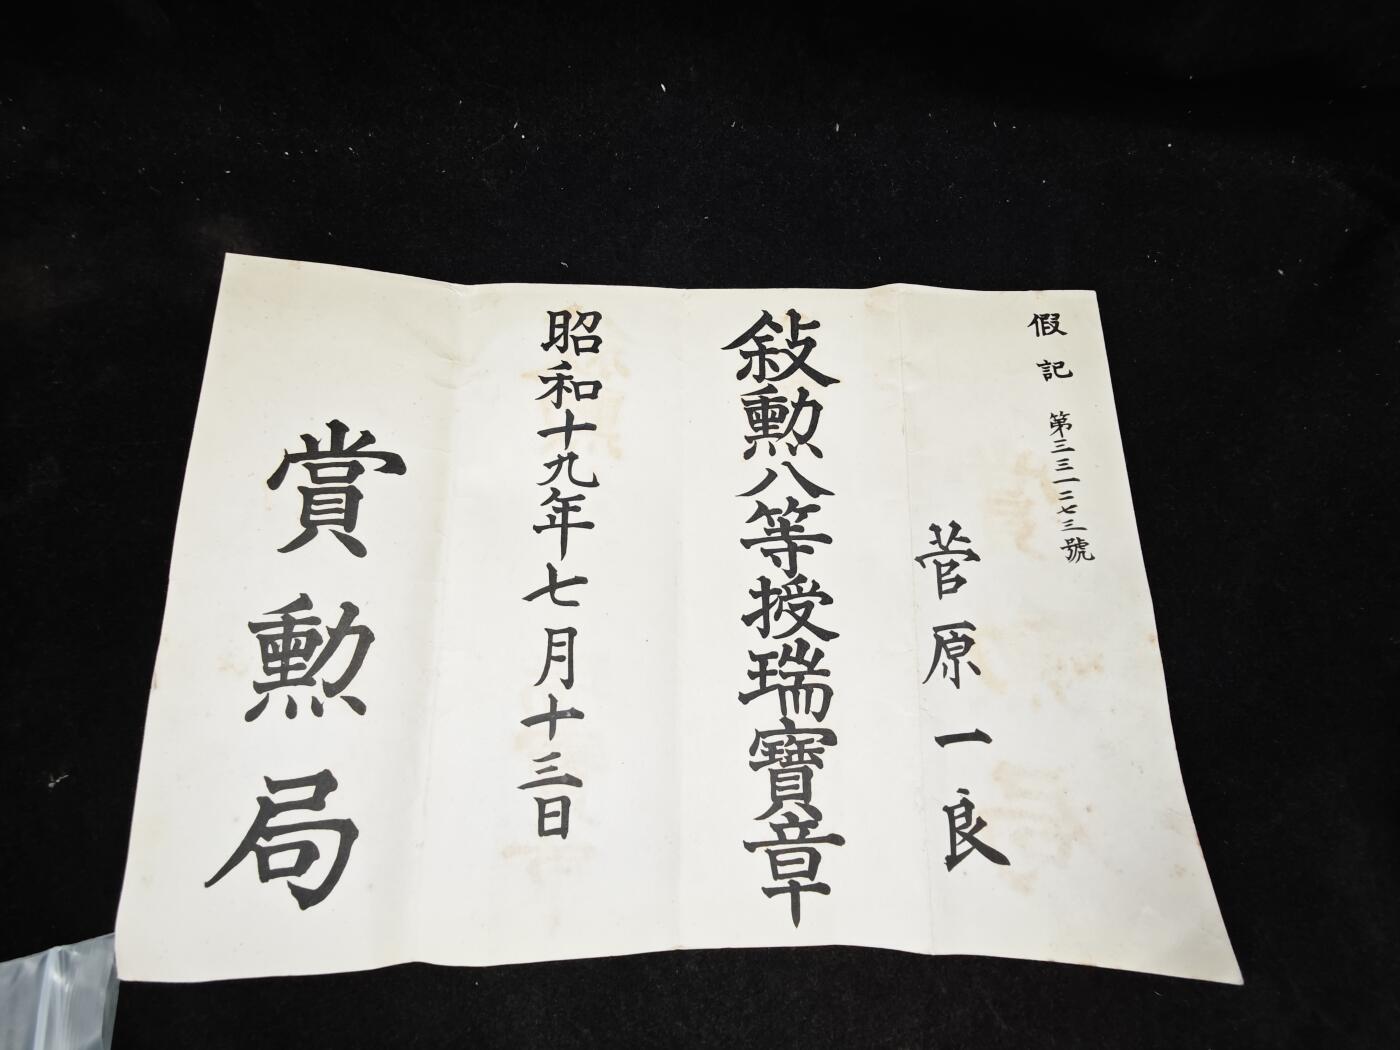 假記 第三三一二七三號
菅原一良
敍勲八等授瑞寶章
昭和十九年七月十三日
賞勲局